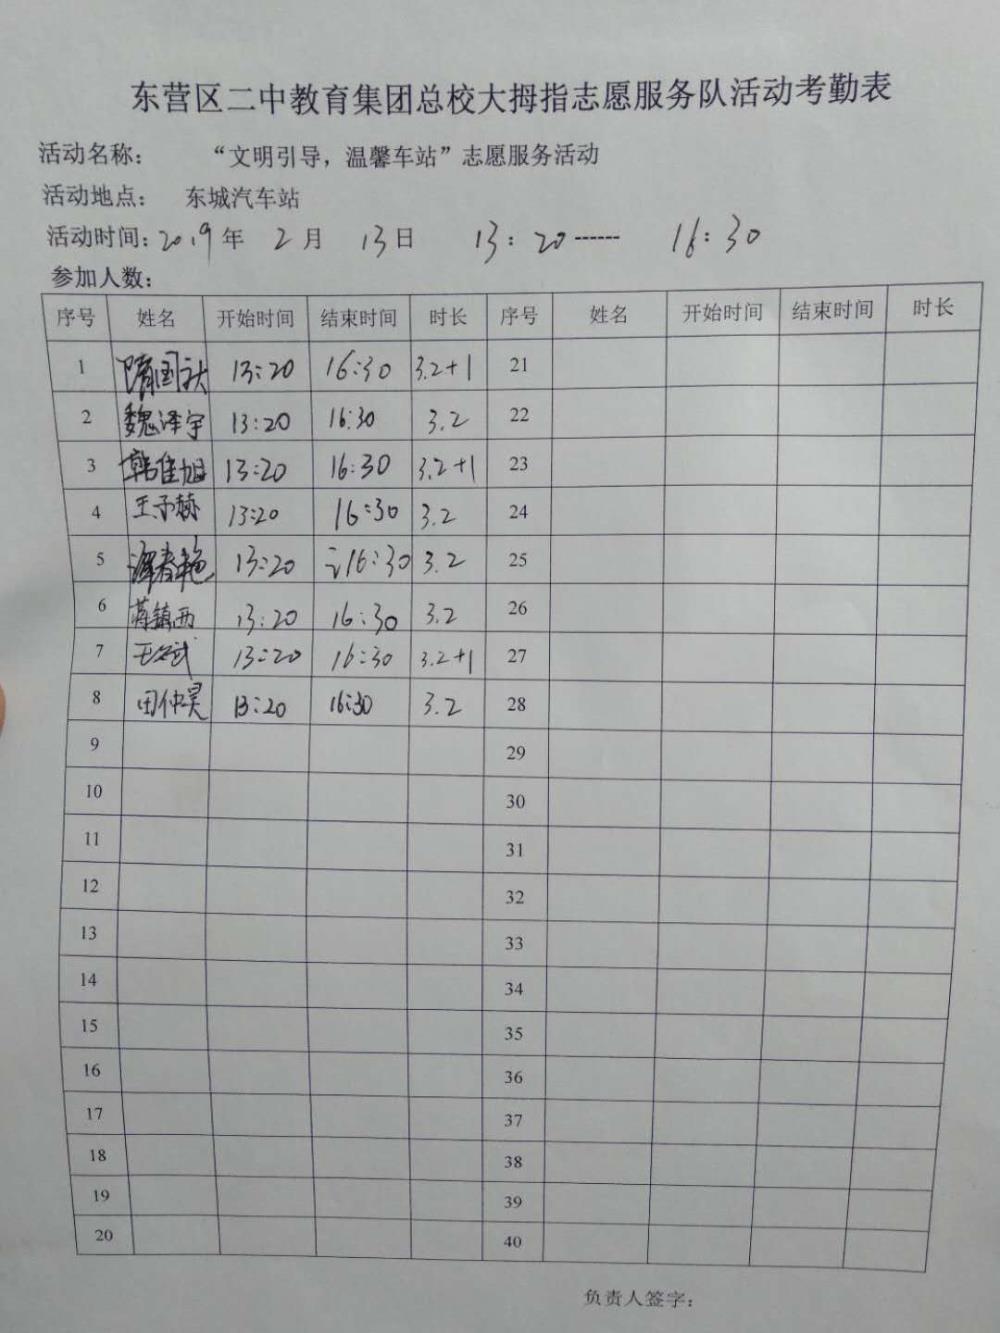 东营区二中教育集团总校大拇指志愿服务队活动考勤表
活动名称： “文明引导，温馨车站”志愿服务活动
活动地点： 东城汽车站
活动时间：2019年 2月 13日 13：20------ 16：30
参加人数：
序号 姓名 开始时间 结束时间 时长 序号 姓名 开始时间 结束时间 时长
1 隋国 13:20 16:30 3.2+1 21
2 魏泽宇 13:20 16:30 3.2 22
3 韩佳旭 13:20 16:30 3.2+1 23
4 王予赫 13:20 16:30 3.2 24
5 春艳 13:20 16:30 3.2 25
6 蒋镇西 13:20 16:30 3.2 26
7 王 武 13:20 16:30 3.2+1 27
8 田仲昊 13:20 16:30 3.2 28
9 29
10 30
11 31
12 32
13 33
14 34
15 35
16 36
17 37
18 38
19 39
20 40
负责人签字：